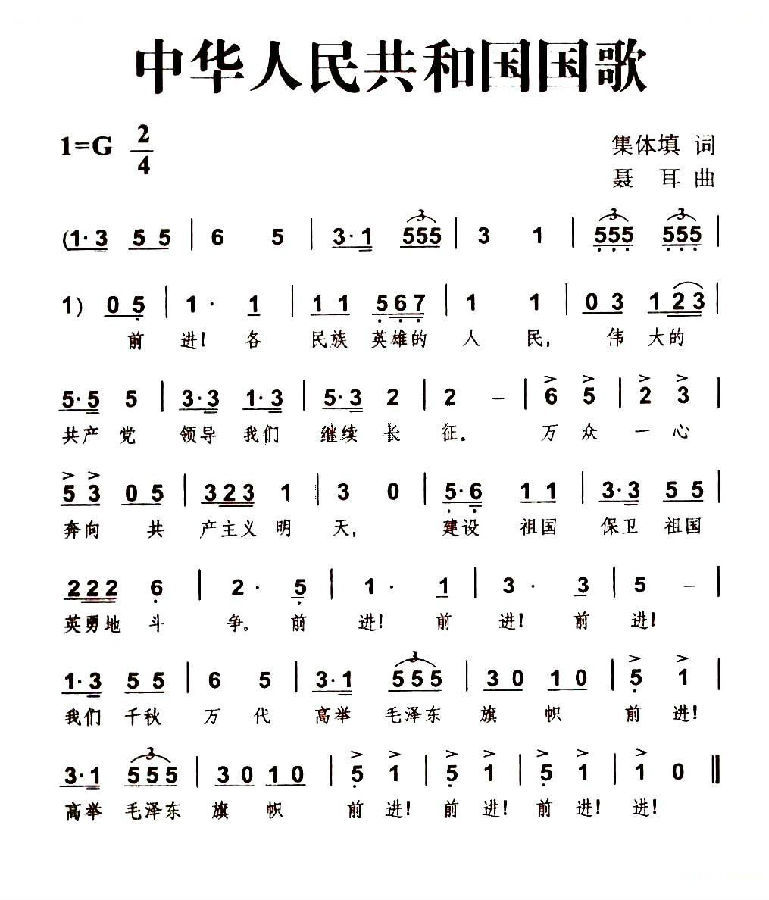 中华人民共和国国歌
1=G 2/4
集体填 词
聂 耳 曲
(1·3 5 5 | 6 5 | 3·1 555 | 3 1 | 555 555 |
1) 0 5 | 1· 1 | 1 1 567 | 1 1 | 0 3 1 2 3 |
前 进! 各 民族 英雄的 人 民, 伟 大的
5·5 5 | 3·3 1·3 | 5·3 2 | 2 – | 6 5 | 2 3 |
共产 党 领导 我们 继续 长 征。 万 众 一 心
5 3 0 5 | 323 1 | 3 0 | 5·6 1 1 | 3·3 5 5 |
奔向 共 产主义 明 天, 建设 祖国 保卫 祖国
222 6 | 2· 5 | 1· 1 | 3· 3 | 5 – |
英勇地 斗 争。 前 进! 前 进! 前 进!
1·3 5 5 | 6 5 | 3·1 555 | 3 0 1 0 | 5 1 |
我们 千秋 万 代 高举 毛泽东 旗 帜 前 进!
3·1 555 | 3 0 1 0 | 5 1 | 5 1 | 5 1 | 1 0 ‖
高举 毛泽东 旗 帜 前 进! 前 进! 前 进! 进!